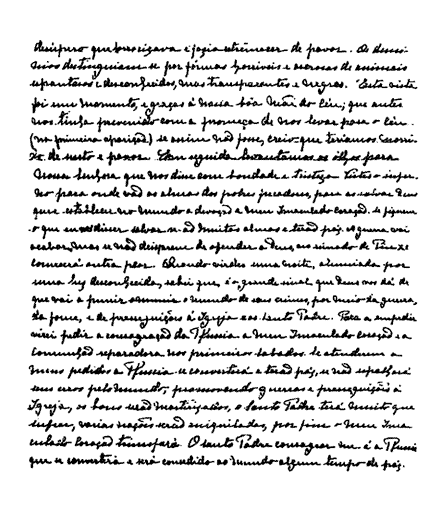 desespero que horrorizava e fazia estremecer de pavor. Os demo-
nios destinguiam-se por formas horriveis e ascrosas de animais
espantosos e desconhecidos, mas transparentes e negros. Esta vista
foi um momento, e graças à nossa bôa Mãi do Céu; que antes
nos tinha prevenido com a promeça de nos levar para o Céu
(na primeira aparição) se assim não fosse, creio que teriamos morri-
do de susto e pavor. Em seguida, levantamos os olhos para
Nossa Senhora que nos disse com bondade e tristeza: Vistes o infer-
no para onde vão as almas dos pobres pecadores, para as salvar Deus
quere establecer no mundo a devoção a meu Imaculado Coração. Se fizerem
o que eu disser salvar-se-ão muitas almas e terão paz. A guerra vai
acabar, mas se não deixarem de ofender a Deus, no reinado de Pio XI
começará outra peor. Quando virdes uma noite, alumiada por
uma luz desconhecida, sabei que é o grande sinal que Deus vos dá de
que vai a punir o mundo de seus crimes, por meio da guerra,
da fome, e de perseguições à Igreja e ao Santo Padre. Para a empedir
virei pedir a consagração da Russia a meu Imaculado Coração e a
Comunhão reparadora nos primeiros sabados. Se atenderem a
meus pedidos a Russia se converterá e terão paz, se não espalhará
seus erros pelo mundo, promovendo guerras e perseguições à
Igreja, os bons serão martirizados, o Santo Padre terá muito que
sufrer, varias nações serão aniquiladas, por fim o meu Ima-
culado Coração triunfará. O Santo Padre consagrar-me-á a Russia
que se converterá e será consedido ao mundo algum tempo de paz.